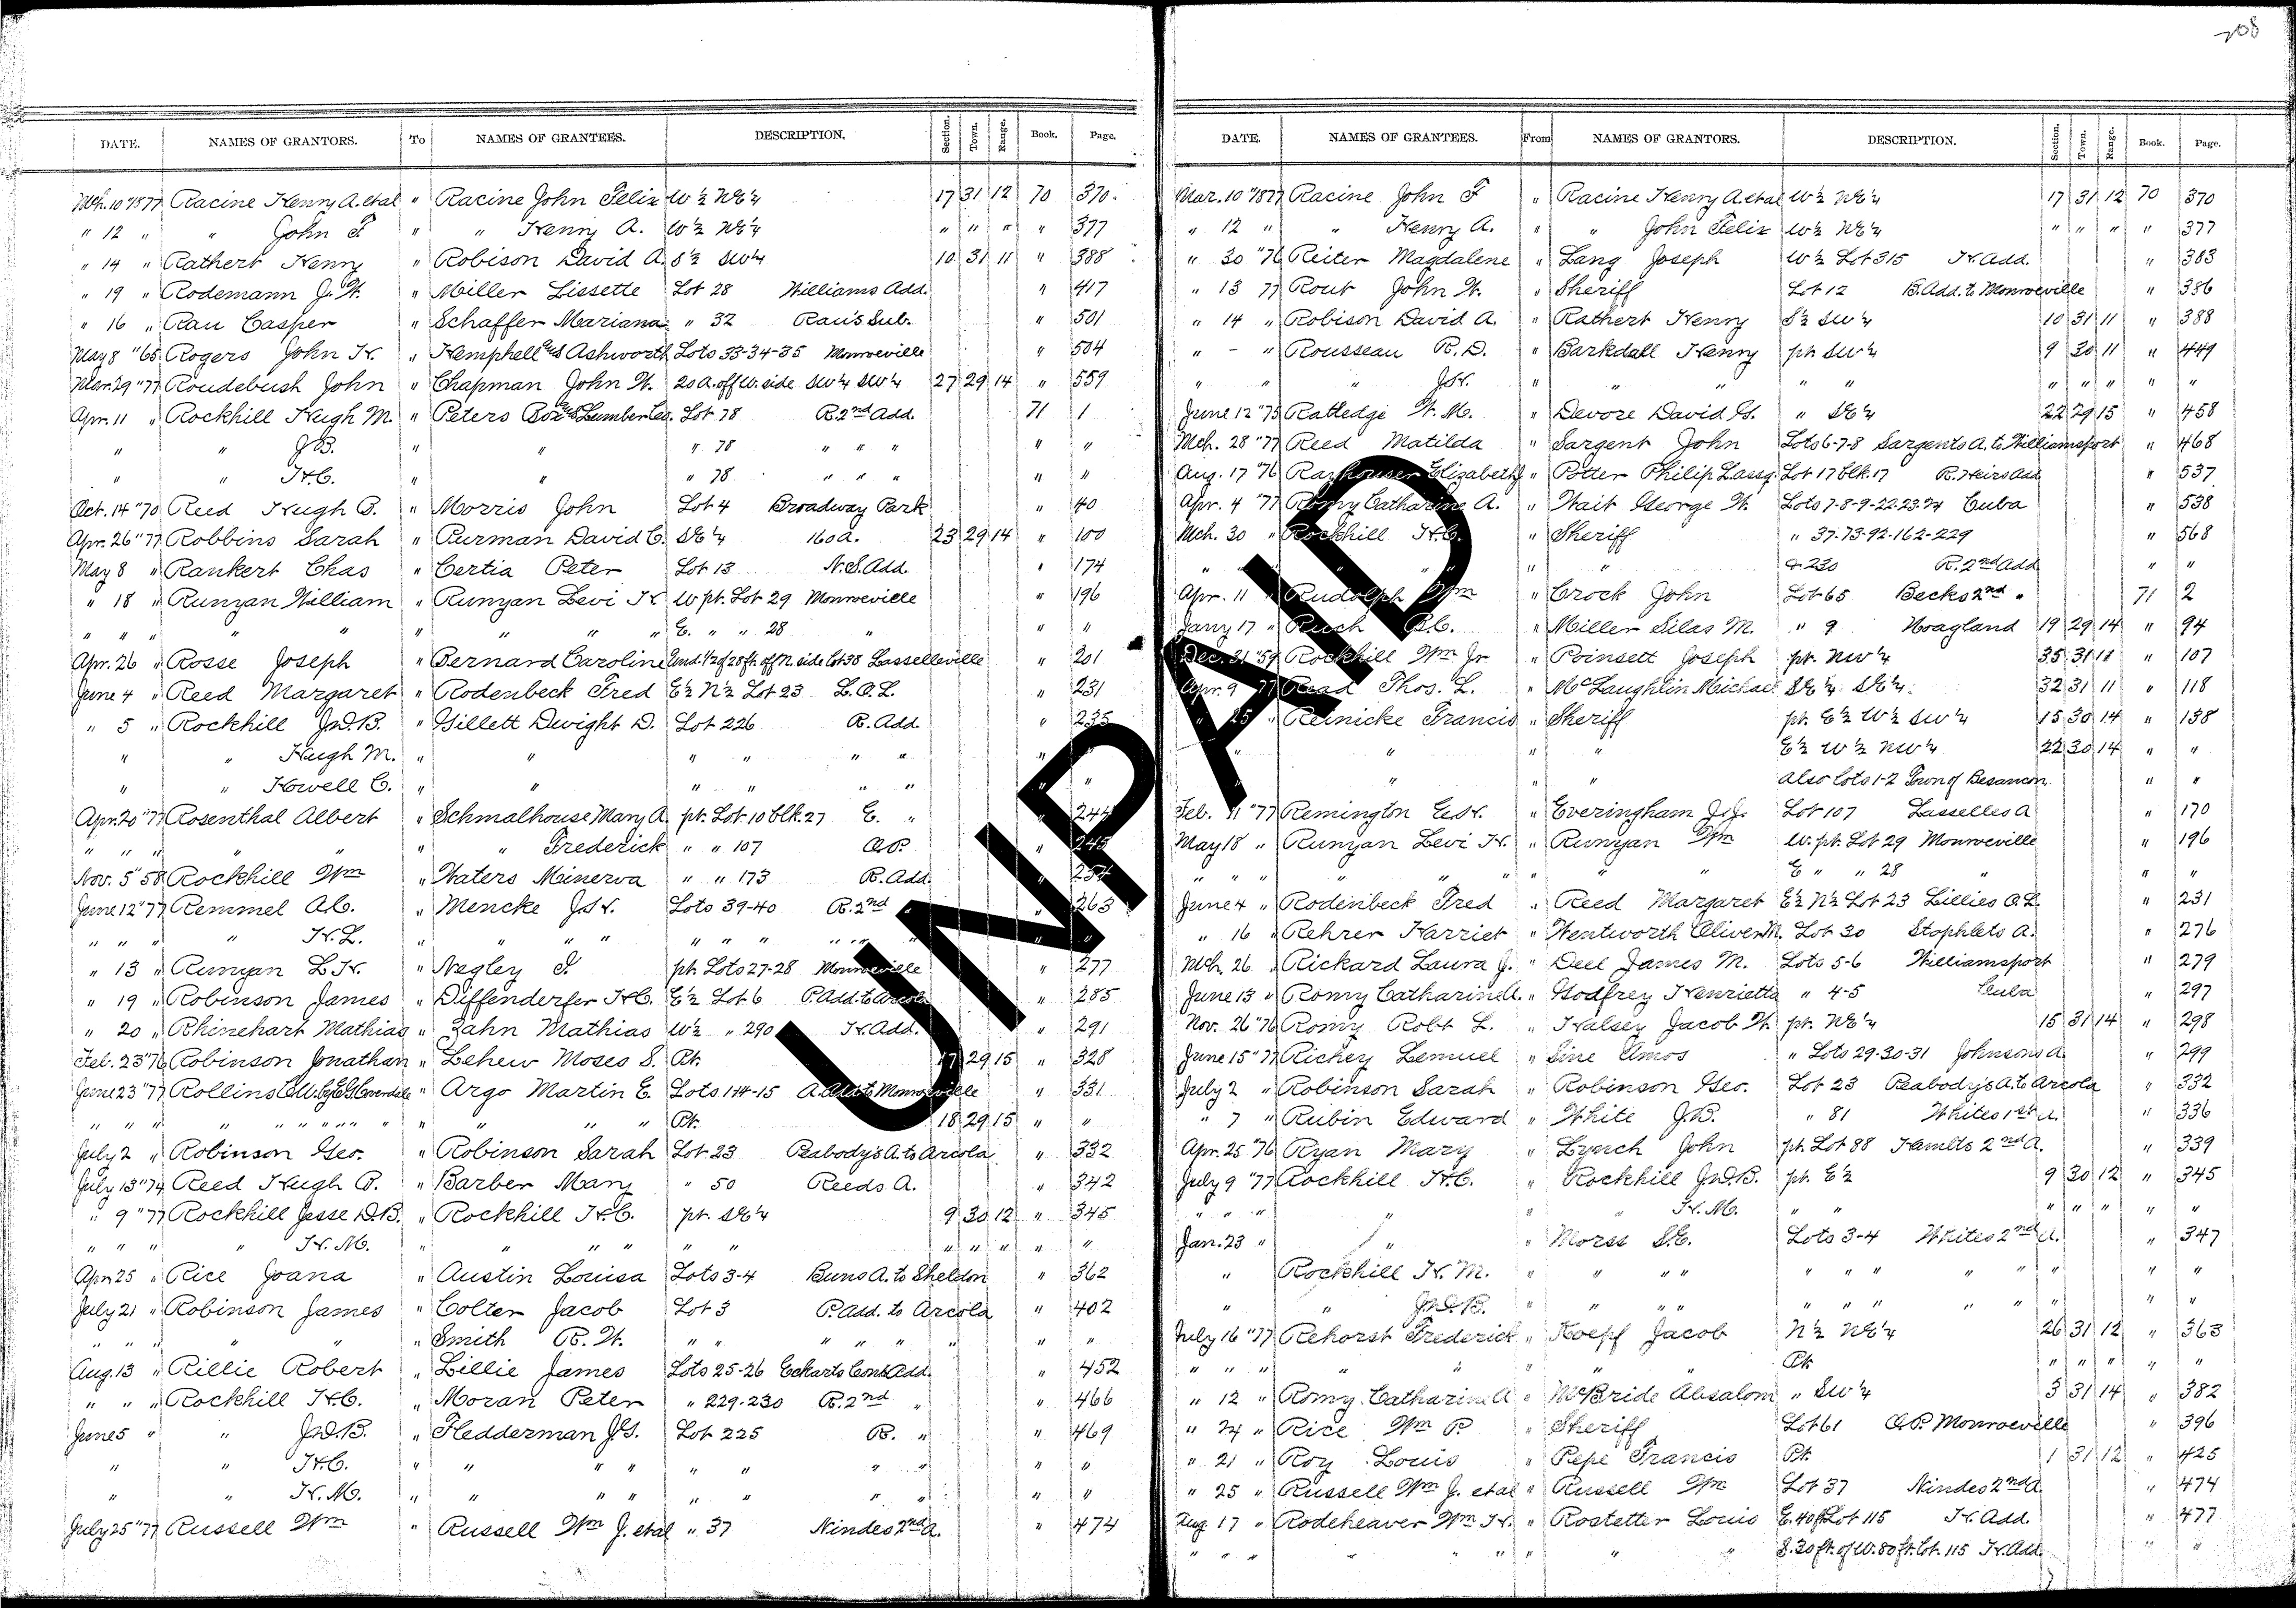 208
DATE. NAMES OF GRANTORS. To NAMES OF GRANTEES. DESCRIPTION. Section. Town. Range. Book. Page.
Mch. 10 1877 Racine Henry A. etal " Racine John Felix W½ NE¼ 17 31 12 70 370
" 12 " " John F. " " Henry A. W½ NE¼ " " " " 377
" 14 " Rathert Henry " Robison David A. S½ SW¼ 10 31 11 " 388
" 19 " Rodemann J. W. " Miller Lissette Lot 28 Williams Add. " 417
" 16 " Rau Casper " Schaffer Mariana " 32 Rau's Sub. " 501
May 8 "65 Rogers John H. " Hemphell Ashworth Lots 33-34-35 Monroeville " 504
Mar. 29 "77 Roudebush John " Chapman John W. 20 A. off W. side SW¼ SW¼ 27 29 14 " 559
Apr. 11 " Rockhill Hugh M. " Peters Box & Lumber Co. Lot 78 R. 2nd Add. 71 1
" " J.B. " " " 78 " " " " "
" " H.C. " " " 78 " " " " "
Oct. 14 "70 Reed Hugh B. " Morris John Lot 4 Broadway Park " 40
Apr. 26 "77 Robbins Sarah " Purman David C. SE¼ 160 A. 23 29 14 " 100
May 8 " Rankert Chas " Certia Peter Lot 13 N.S. Add. " 174
" 18 " Runyan William " Runyan Levi H. W pt. Lot 29 Monroeville " 196
" " " " " " " " E. " " 28 " " "
Apr. 26 " Rosse Joseph " Bernard Caroline Und. 1/2 of 28 ft. off N. side Lot 38 Lasselleville " 201
June 4 " Reed Margaret " Rodenbeck Fred E½ N½ Lot 23 L.O.L. " 231
" 5 " Rockhill Jno. B. " Gillett Dwight D. Lot 226 R. Add. " 235
" " Hugh M. " " " " " " " "
" " Howell C. " " " " " " " "
Apr. 20 "77 Rosenthal Albert " Schmalhouse Mary A. pt. Lot 10 blk. 27 E. " " 244
" " " " " Frederick " " 107 O.P. " 245
Nov. 5 "58 Rockhill Wm " Waters Minerva " " 173 R. Add. " 254
June 12 "77 Remmel A.C. " Mencke J.H. Lots 39-40 R. 2nd " " 263
" " " " H.L. " " " " " " " " " " " "
" 13 " Runyan L.H. " Negley F. pt. Lots 27-28 Monroeville " 277
" 19 " Robinson James " Diffenderfer H.C. E½ Lot 6 P. Add. to Arcola " 285
" 20 " Rhinehart Mathias " Zahn Mathias W½ " 290 H. Add. " 291
Feb. 23 "76 Robinson Jonathan " Lehew Moses S. Pt. 17 29 15 " 328
June 23 "77 Rollins " Argo Martin E. Lots 114-15 A. Add. to Monroeville " 331
" " " " " " " " " " " Pt. 18 29 15 " "
July 2 " Robinson Geo. " Robinson Sarah Lot 23 Peabody's A. to Arcola " 332
July 13 "74 Reed Hugh B. " Barber Mary " 50 Reeds A. " 342
" 9 "77 Rockhill Jesse D.B. " Rockhill H.C. pt. SE¼ 9 30 12 " 345
" " " " H.M. " " " " " " " " " " "
Apr. 25 " Rice Joana " Austin Louisa Lots 3-4 Buns A. to Sheldon " 362
July 21 " Robinson James " Colter Jacob Lot 3 P. Add. to Arcola " 402
" " " " " " Smith B.W. " " " " " " "
Aug. 13 " Rillie Robert " Lillie James Lots 25-26 Eckarts Cont. Add. " 452
" " " Rockhill H.C. " Moran Peter " 229-230 R. 2nd " " 466
June 5 " " Jno. B. " Fledderman J.G. Lot 225 R. " " 469
" " H.C. " " " " " " " " " "
" " H.M. " " " " " " " " " "
July 25 "77 Russell Wm " Russell Wm J. etal " 37 Nindes 2nd A. " 474
DATE. NAMES OF GRANTEES. From NAMES OF GRANTORS. DESCRIPTION. Section. Town. Range. Book. Page.
Mar. 10 1877 Racine John F " Racine Henry A. etal W½ NE¼ 17 31 12 70 370
" 12 " " Henry A. " " John Felix W½ NE¼ " " " " 377
" 30 "76 Reiter Magdalene " Lang Joseph W½ Lot 315 H. Add. " 383
" 13 "77 Rout John W. " Sheriff Lot 12 B. Add. to Monroeville " 386
" 14 " Robison David A. " Rathert Henry S½ SW¼ 10 31 11 " 388
" - " Rousseau R.D. " Barkdall Henry pt. SW¼ 9 30 11 " 449
" " " J.H. " " " " " " " " " "
June 12 "75 Ratledge W.M. " Devore David G. " SE¼ 22 29 15 " 458
Mch. 28 "77 Reed Matilda " Sargent John Lots 6-7-8 Sargents A. to Williamsport " 468
Aug. 17 "76 Razhouser Elizabeth " Potter Philip L. assg. Lot 17 blk. 17 R. Heirs Add. " 537
Apr. 4 "77 Romy Catharine A. " Wait George W. Lots 7-8-9-22-23-24 Cuba " 538
Mch. 30 " Rockhill H.C. " Sheriff " 37-73-92-162-229 " 568
" " " " " & 230 R. 2nd Add. " "
Apr. 11 " Rudolph Wm " Crock John Lot 65 Becks 2nd " 71 2
Jany 17 " Ruch P.C. " Miller Silas M. " 9 Hoagland 19 29 14 " 94
Dec. 31 "59 Rockhill Wm Jr " Poinsett Joseph pt. NW¼ 35 31 11 " 107
Apr. 9 "77 Read Thos. L. " McLaughlin Michael SE¼ SE¼ 32 31 11 " 118
" 25 " Reinicke Francis " Sheriff pt. E½ W½ SW¼ 15 30 14 " 138
" " " " E½ W½ NW¼ 22 30 14 " "
" " " Also Lots 1-2 Town of Besancon " "
Feb. 11 "77 Remington E.H. " Everingham J.J. Lot 107 Lasselles A " 170
May 18 " Runyan Levi H. " Runyan Wm W. pt. Lot 29 Monroeville " 196
" " " " " " " " E " " 28 " " "
June 4 " Rodenbeck Fred " Reed Margaret E½ N½ Lot 23 Lillies O.L. " 231
" 16 " Rehrer Harriet " Wentworth Oliver M. Lot 30 Stophlets A. " 276
Mch. 26 " Rickard Laura J. " Deel James M. Lots 5-6 Williamsport " 279
June 13 " Romy Catharine A. " Godfrey Henrietta " 4-5 Cuba " 297
Nov. 26 "76 Romy Robt L. " Halsey Jacob W. pt. NE¼ 15 31 14 " 298
June 15 "77 Richey Lemuel " Sine Amos " Lots 29-30-31 Johnsons A " 299
July 2 " Robinson Sarah " Robinson Geo. Lot 23 Peabody's A. to Arcola " 332
" 7 " Rubin Edward " White J.B. " 81 Whites 1st A. " 336
Apr. 25 "76 Ryan Mary " Lynch John pt. Lot 88 Hamilts 2nd A. " 339
July 9 "77 Rockhill H.C. " Rockhill Jno. B. pt. E½ 9 30 12 " 345
" " " " " " H.M. " " " " " " "
Jan. 23 " " " Morss S.E. Lots 3-4 Whites 2nd A. " 347
" Rockhill H.M. " " " " " " " " " " "
" " Jno. B. " " " " " " " " " " "
July 16 "77 Rehorst Frederick " Koepf Jacob N½ NE¼ 26 31 12 " 363
" " " " " " " " Pt. " " " " "
" 12 " Romy Catharine A " McBride Absalom " SW¼ 3 31 14 " 382
" 24 " Rice Wm P. " Sheriff Lot 61 O.P. Monroeville " 396
" 21 " Roy Louis " Pepe Francis Pt. 1 31 12 " 425
" 25 " Russell Wm J. etal " Russell Wm Lot 37 Nindes 2nd A " 474
Aug 17 " Rodeheaver Wm H. " Rostetter Louis E. 40 ft Lot 115 H. Add. " 477
" " " " " " " " " S. 30 ft. of W. 80 ft. Lot. 115 H. Add. " "
UNPAID